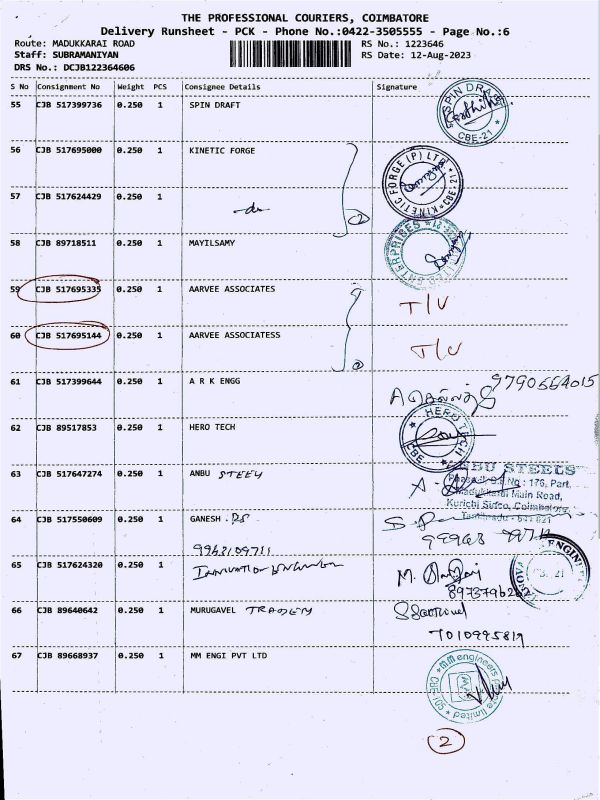 THE PROFESSIONAL COURIERS, COIMBATORE
Delivery Runsheet - PCK - Phone No.:0422-3505555 - Page No.:6
Route: MADUKKARAI ROAD RS No.: 1223646
Staff: SUBRAMANIYAN RS Date: 12-Aug-2023
DRS No.: DCJB122364606
S No Consignment No Weight PCS Consignee Details Signature
55 CJB 517399736 0.250 1 SPIN DRAFT
SPIN DRAFT
CBE-21
56 CJB 517695000 0.250 1 KINETIC FORGE
KINETIC FORGE (P) LTD
CBE-21
57 CJB 517624429 0.250 1
-do- (2)
58 CJB 89718511 0.250 1 MAYILSAMY
ENTERPRISES
59 CJB 517695335 0.250 1 AARVEE ASSOCIATES T/U
60 CJB 517695144 0.250 1 AARVEE ASSOCIATESS T/U
61 CJB 517399644 0.250 1 A R K ENGG
9790664015
62 CJB 89517853 0.250 1 HERO TECH
HERO TECH
CBE
63 CJB 517647274 0.250 1 ANBU STEELS
STEELS
176, Part,
Main Road,
Kurichi Sidco, Coimbatore
64 CJB 517550609 0.250 1 GANESH
65 CJB 517624320 0.250 1
M.
66 CJB 89640642 0.250 1 MURUGAVEL TRADERS
7010995819
67 CJB 89668937 0.250 1 MM ENGI PVT LTD
MM engineers private limited
CBE-
2